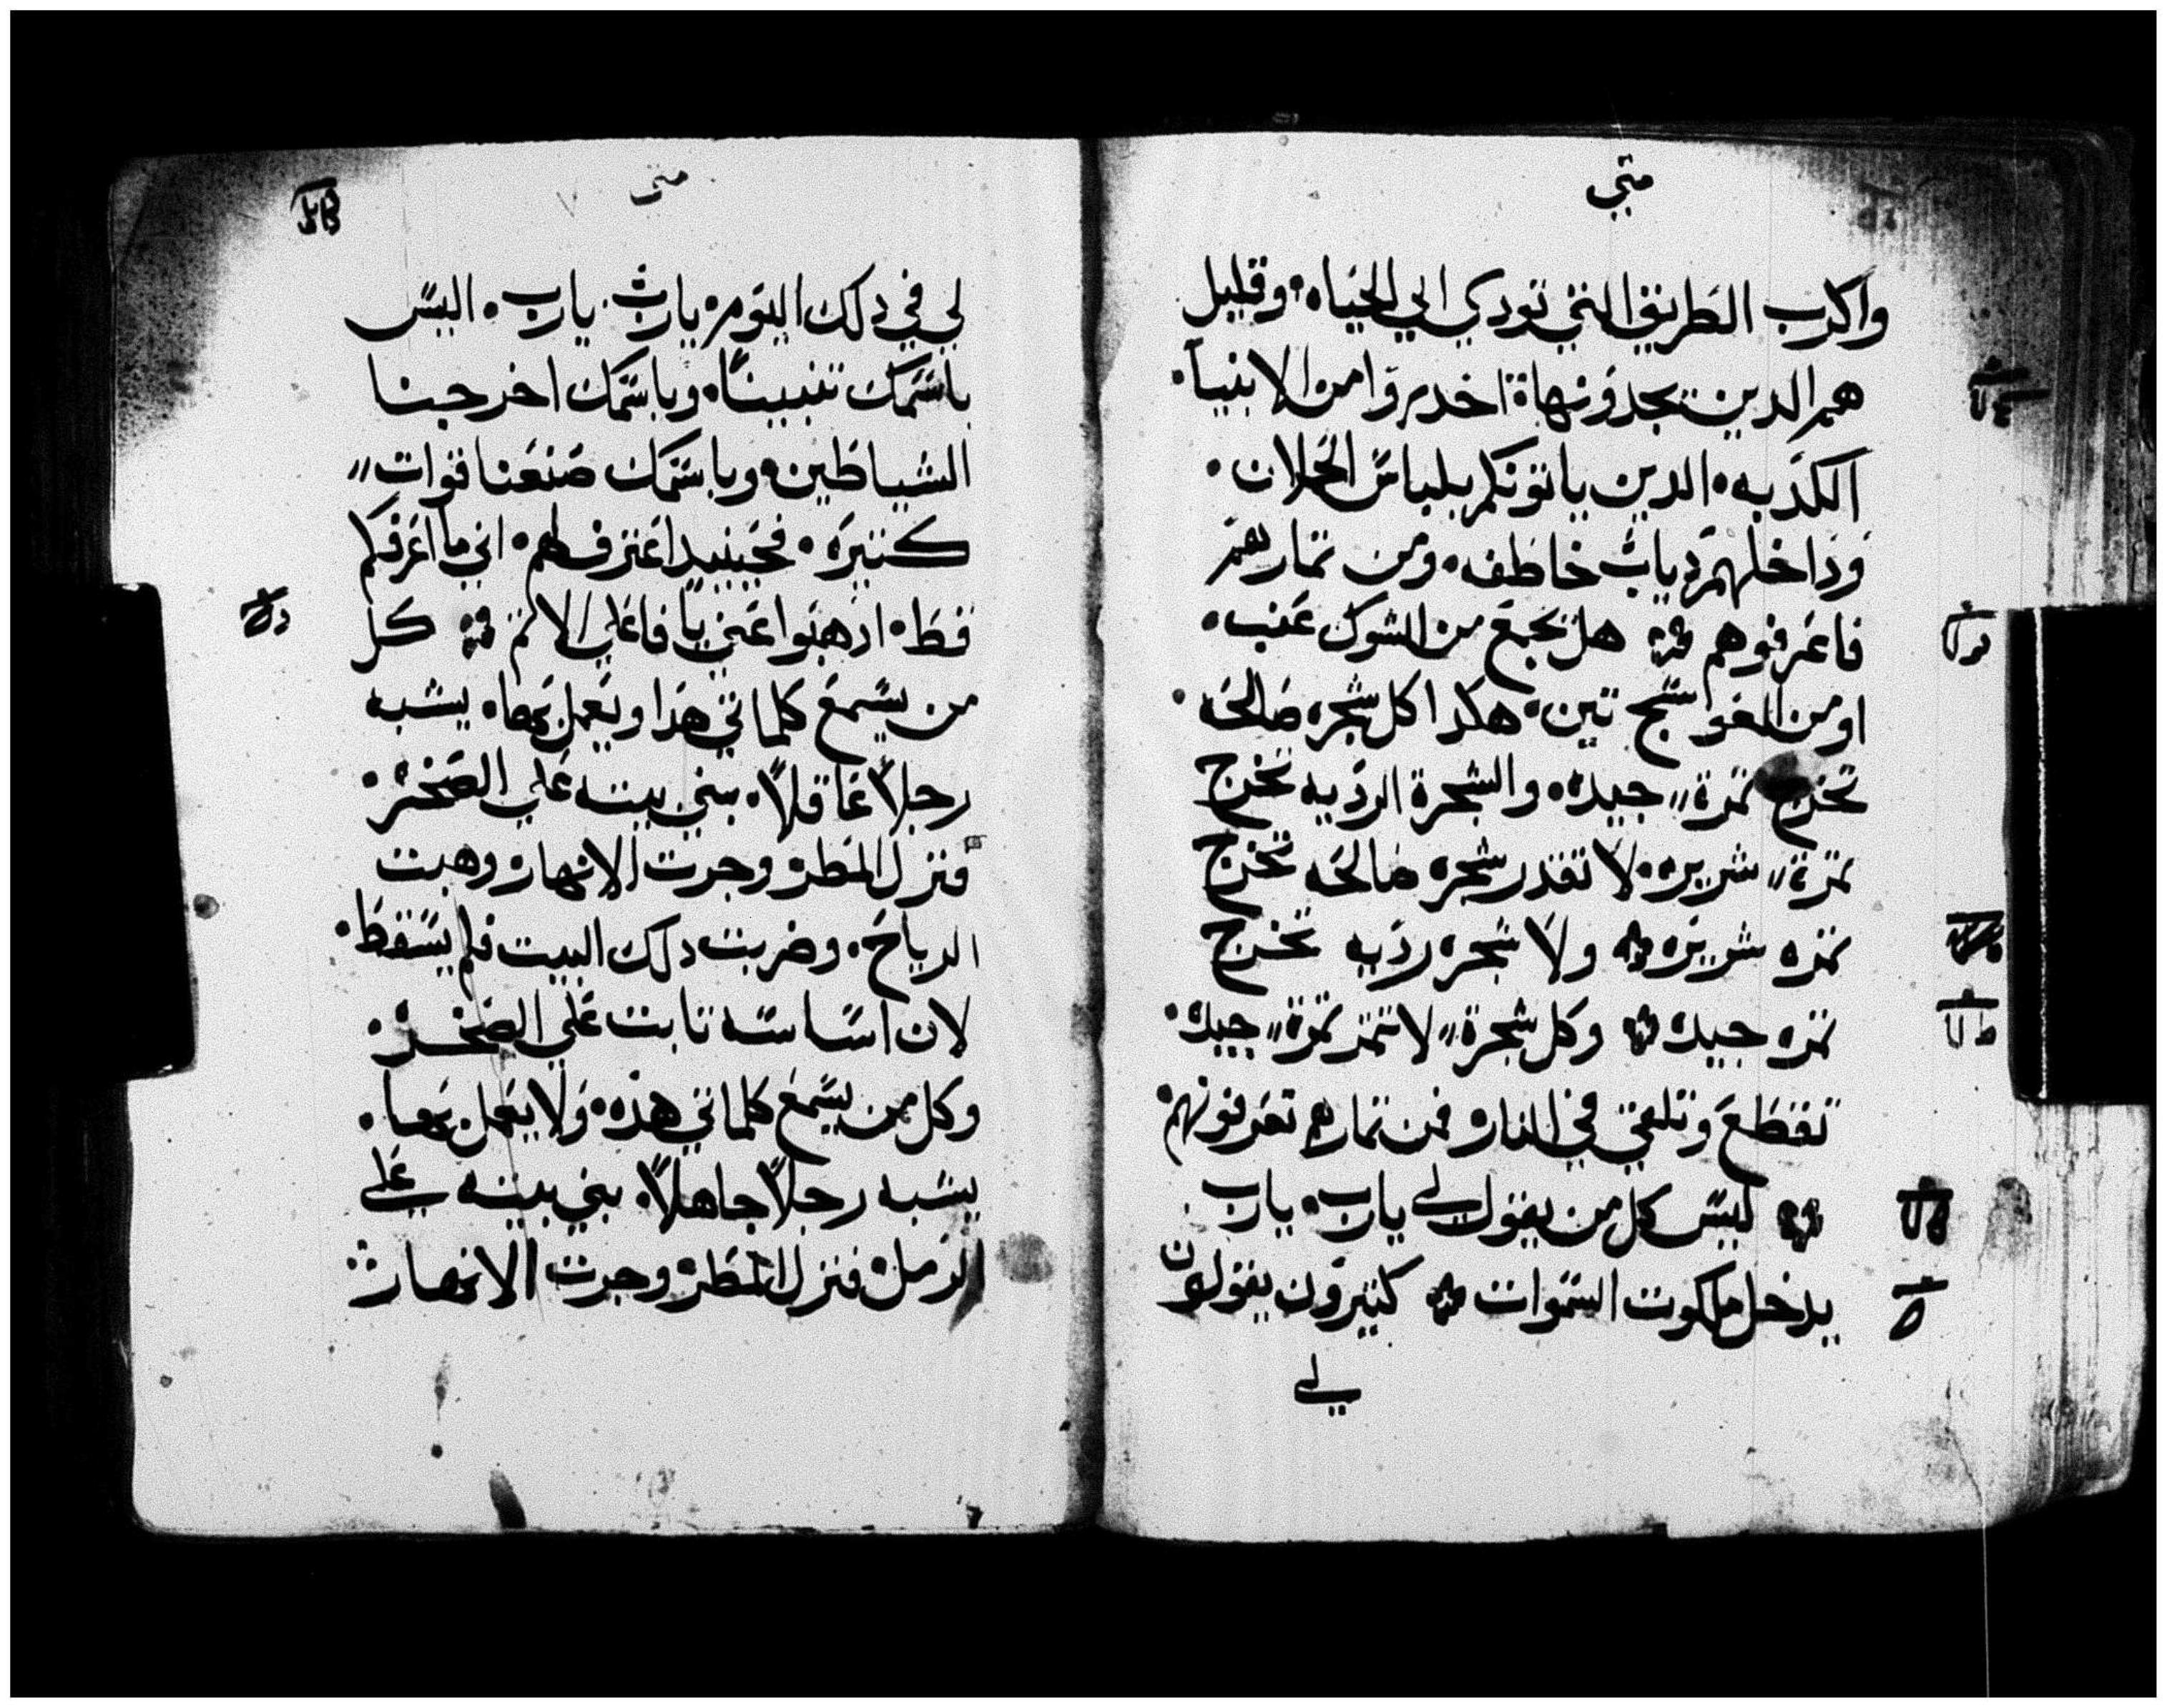 متي
واكرب الطريق التي تودي الي الحياه وقليل
هم الدين يجدونها احدروا من الانبيا
الكدبه الدين ياتونكم بلباس الحملان
وداخلهم دياب خاطفه ومن تمارهم
فاعرفوهم هل يجمع من الشوك عنب
او من العوسج تين هكدا كل شجره صالحه
تخرج تمرة جيده والشجرة الرديه تخرج
تمرة شريره لا تقدر شجره صالحه تخرج
تمره شريره ولا شجره رديه تخرج
تمره جيده وكل شجرة لا تتمر تمرة جيده
تقطع وتلقي في النار فمن تمارهم تعرفونهم
ليس كل من يقول لي يارب يارب
يدخل ملكوت السموات كتيرون يقولون
لي
متى
لي في دلك اليوم يارب يارب اليس
باسمك تنبينا وباسمك اخرجنا
الشياطين وباسمك صنعنا قوات
كتيره فحينيد اعترف لهم اني ما اعرفكم
قط ادهبوا عني يا فاعلي الاتم كل
من يسمع كلماتي هدا ويعمل بها يشبه
رجلاً عاقلاً بني بيته علي الصخر
فنزل المطر وجرت الانهار وهبت
الرياح وضربت دلك البيت فلم يسقط
لان اساسه تابت علي الصخر
وكل من يسمع كلماتي هده ولا يعمل بها
يشبه رجلاً جاهلاً بني بيته علي
الرمل فنزل المطر وجرت الانهار